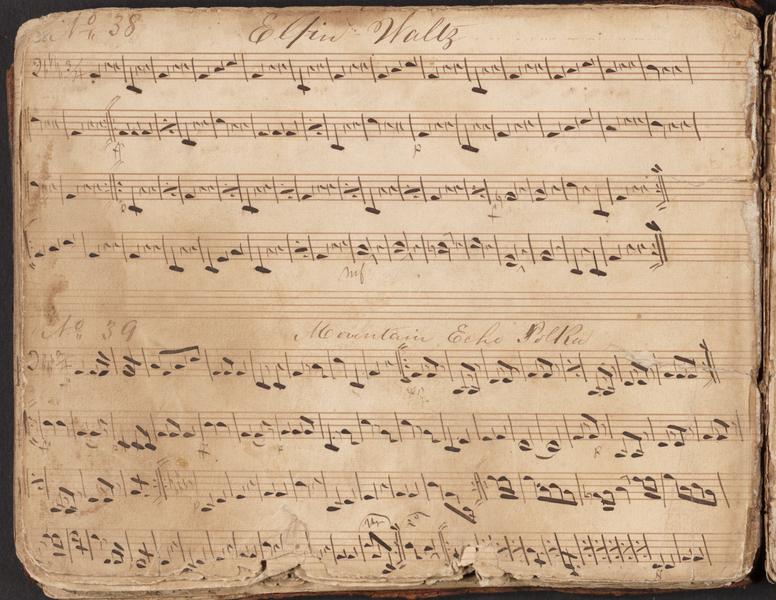 No 38 Elfin Waltz
3/4
p
mf
No 39 Mountain Echo Polka